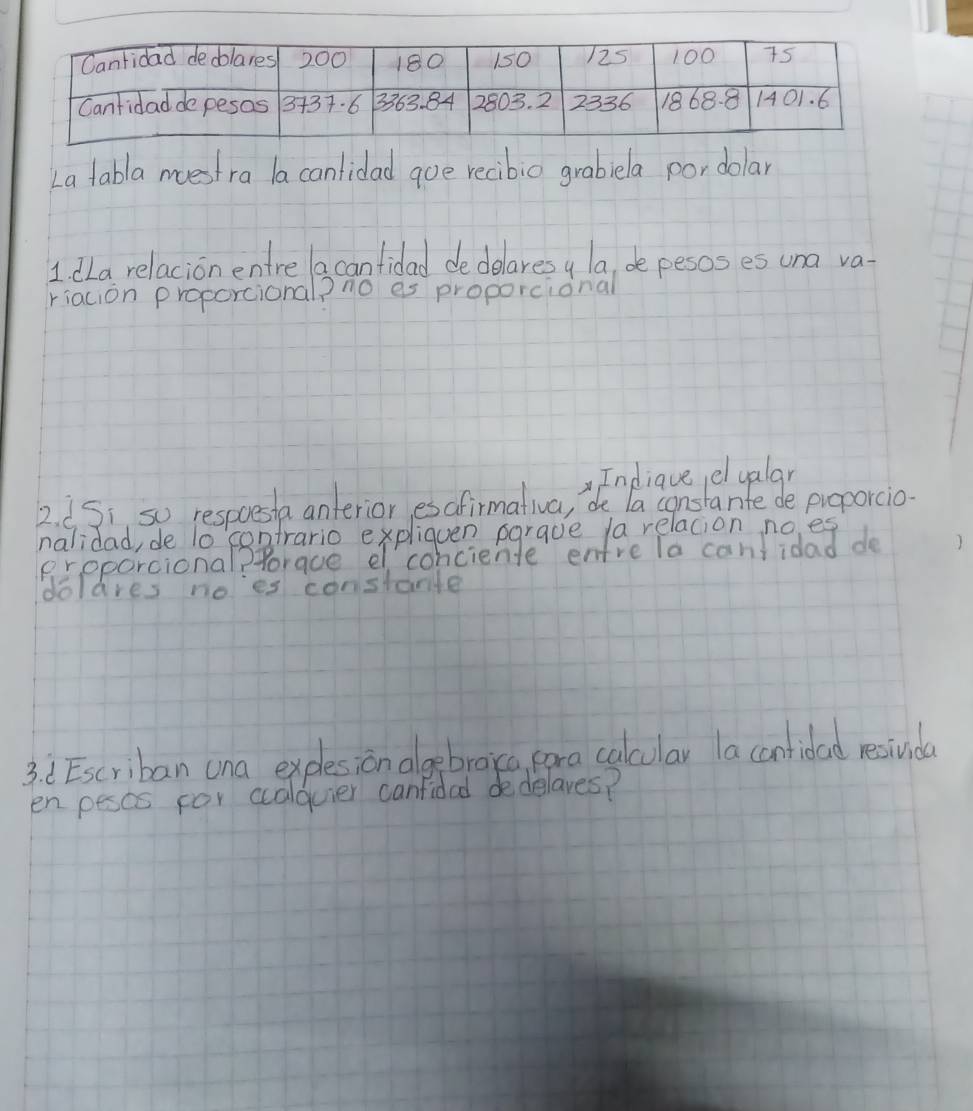 Cantidad de dolares 200 180 150 125 100 75
Cantidad de pesos 3737.6 3363.84 2803.2 2336 1868.8 1401.6
La tabla muestra la cantidad que recibio grabiela por dolar
1.¿La relación entre la cantidad de dolares y la, de pesos es una va-
riación proporcional? no es proporcional
2.¿Si su respuesta anterior es afirmativa, Indique el valor de la constante de proporcio-
nalidad, de lo contrario expliquen porque la relacion no es
proporcional? Porque el conciente entre la cantidad de
dolares no es constante
3.¿Escriban una explesión algebraica para calcular la cantidad resivida
en pesos por cualquier cantidad de dolares?